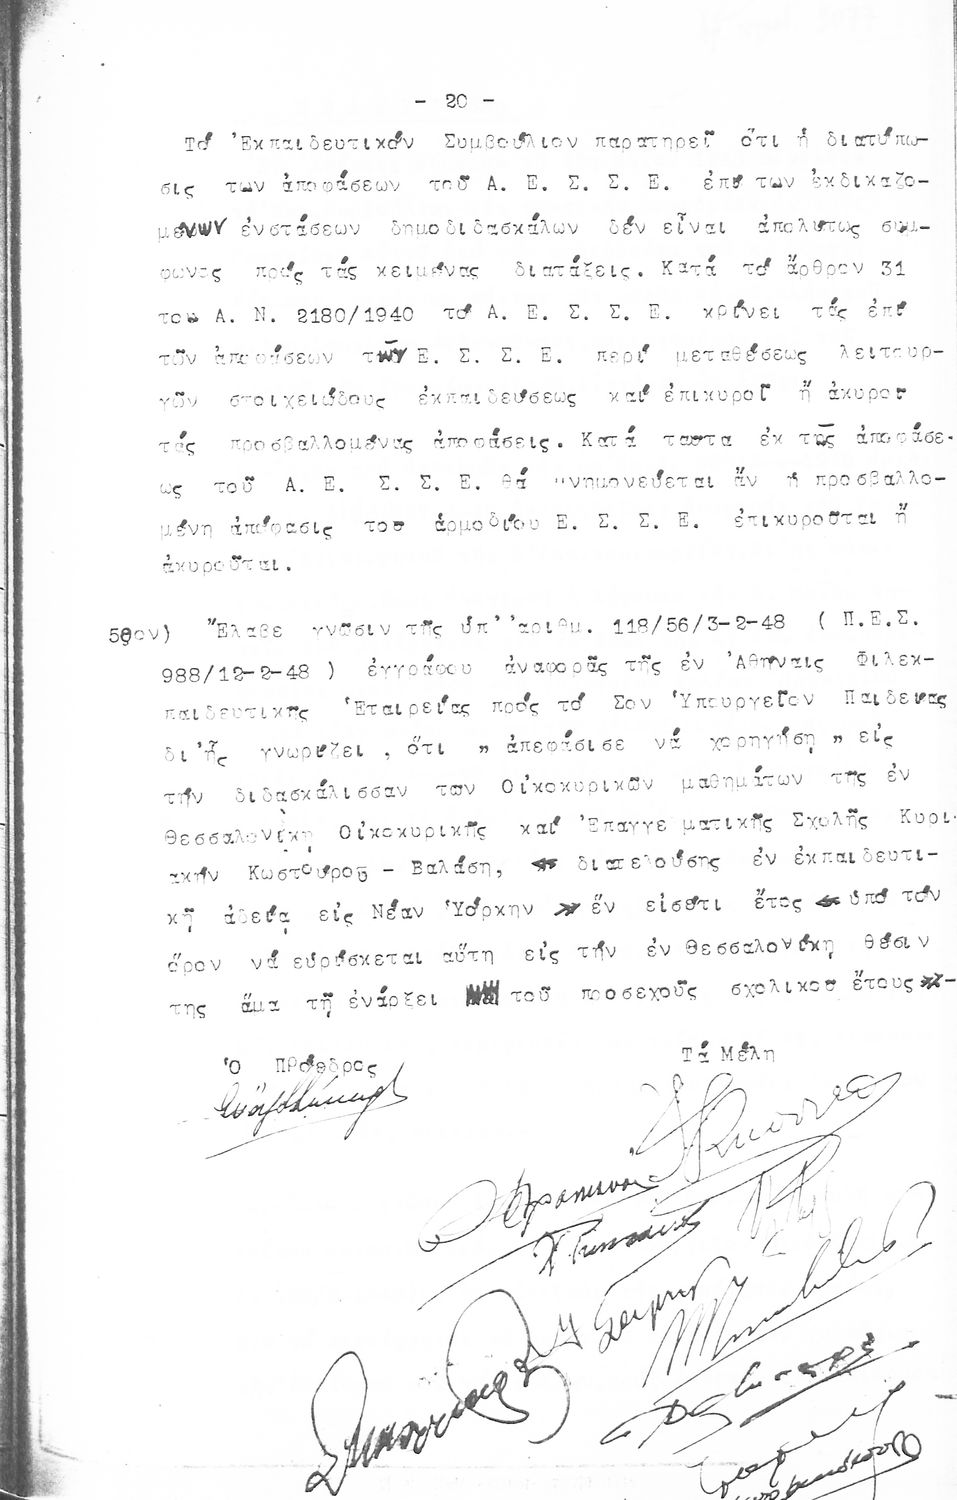 - 20 -
Τό Ἐκπαιδευτικόν Συμβούλιον παρατηρεῖ ὅτι ἡ διατύπω-
σις των ἀποφάσεων τοῦ Α. Ε. Σ. Σ. Ε. ἐπί των ἐκδικαζο-
μένων ἐνστάσεων δημοδιδασκάλων δέν εἶναι ἀπολύτως συμ-
φωνος πρός τάς κειμένας διατάξεις. Κατά τό ἄρθρον 31
του Α. Ν. 2180/1940 τό Α. Ε. Σ. Σ. Ε. κρίνει τάς ἐπί
τῶν ἀποφάσεων τῶν Ε. Σ. Σ. Ε. περί μεταθέσεως λειτουρ-
γῶν στοιχειώδους ἐκπαιδεύσεως καί ἐπικυροῖ ἤ ἀκυροῖ
τάς προσβαλλομένας ἀποφάσεις. Κατά ταυτα ἐκ τῆς ἀποφάσε-
ως τοῦ Α. Ε. Σ. Σ. Ε. θά μνημονεύεται ἄν ἡ προσβαλλο-
μένη ἀπόφασις του ἁρμοδίου Ε. Σ. Σ. Ε. ἐπικυροῦται ἤ
ἀκυροῦται.
5ον) Ἔλαβε γνῶσιν τῆς ὑπ' ἀριθμ. 118/56/3-2-48 ( Π.Ε.Σ.
988/12-2-48 ) ἐγγράφου ἀναφορᾶς τῆς ἐν Ἀθήναις Φιλεκ-
παιδευτικῆς Ἑταιρείας πρός τό Σον Ὑπουργεῖον Παιδείας
δι'ἧς γνωρίζει , ὅτι " ἀπεφάσισε νά χορηγήσῃ " εἰς
τήν διδασκάλισσαν των Οἰκοκυρικῶν μαθημάτων τῆς ἐν
Θεσσαλονίκῃ Οἰκοκυρικῆς καί Ἐπαγγε ματικῆς Σχολῆς Κυρι-
ακήν Κωστούρου - Βαλάση, « διατελούσης ἐν ἐκπαιδευτι-
κῇ ἀδείᾳ εἰς Νέαν Ὑόρκην » ἕν εἰσέτι ἔτος « ὑπό τόν
ὅρον νά εὑρίσκεται αὕτη εἰς τήν ἐν Θεσσαλονίκῃ θέσιν
της ἅμα τῇ ἐνάρξει τοῦ προσεχοῦς σχολικοῦ ἔτους »-
Ὁ Πρόεδρος
Τά Μέλη